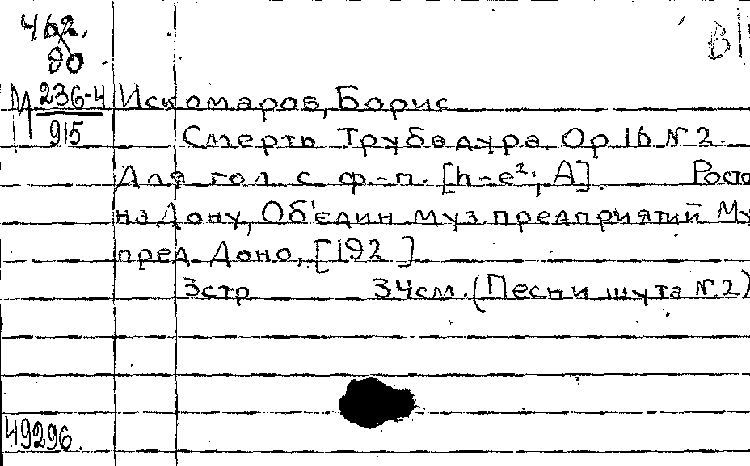 462.
80
В
М 236-4 Искомаров, Борис
915
Смерть Трубадура Op 16 № 2
Для гол с ф-п. [h-e²; A].
на Дону, Об'един муз предприятий
пред. Доно, [192 ]
3стр 34см. (Песни шута № 2)
49296.